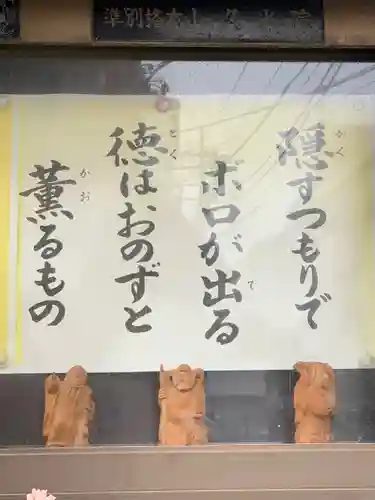 準別格本山 久米院
隠すつもりで
かく
ボロが出る
で
徳はおのずと
とく
薫るもの
かお